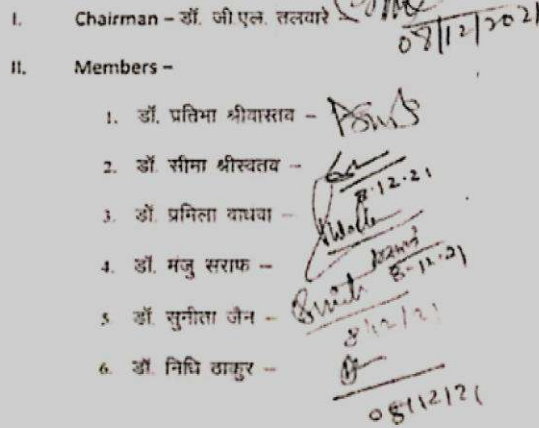 I. Chairman – डॉ. जी.एल. तलवारे –
08/12/2021
II. Members –
1. डॉ. प्रतिभा श्रीवास्तव –
2. डॉ. सीमा श्रीस्वतव –
8.12.21
3. डॉ. प्रमिला वाधवा –
4. डॉ. मंजु सराफ –
8-12-21
5. डॉ. सुनीता जैन –
8/12/21
6. डॉ. निधि ठाकुर –
08/12/21